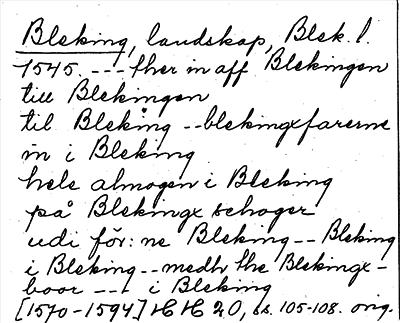 Bleking, landskap, Blek. l.
1545. --- ther in aff Blekingen
till Blekingen
til Bleking -- blekingxfarerne
in i Bleking
hele almogen i Bleking
på Blekingx schoger
udi för:ne Bleking -- Bleking
i Bleking -- medh the Blekingx-
boor --- i Bleking
[1570-1594] HH 20, ss. 105-108. orig.